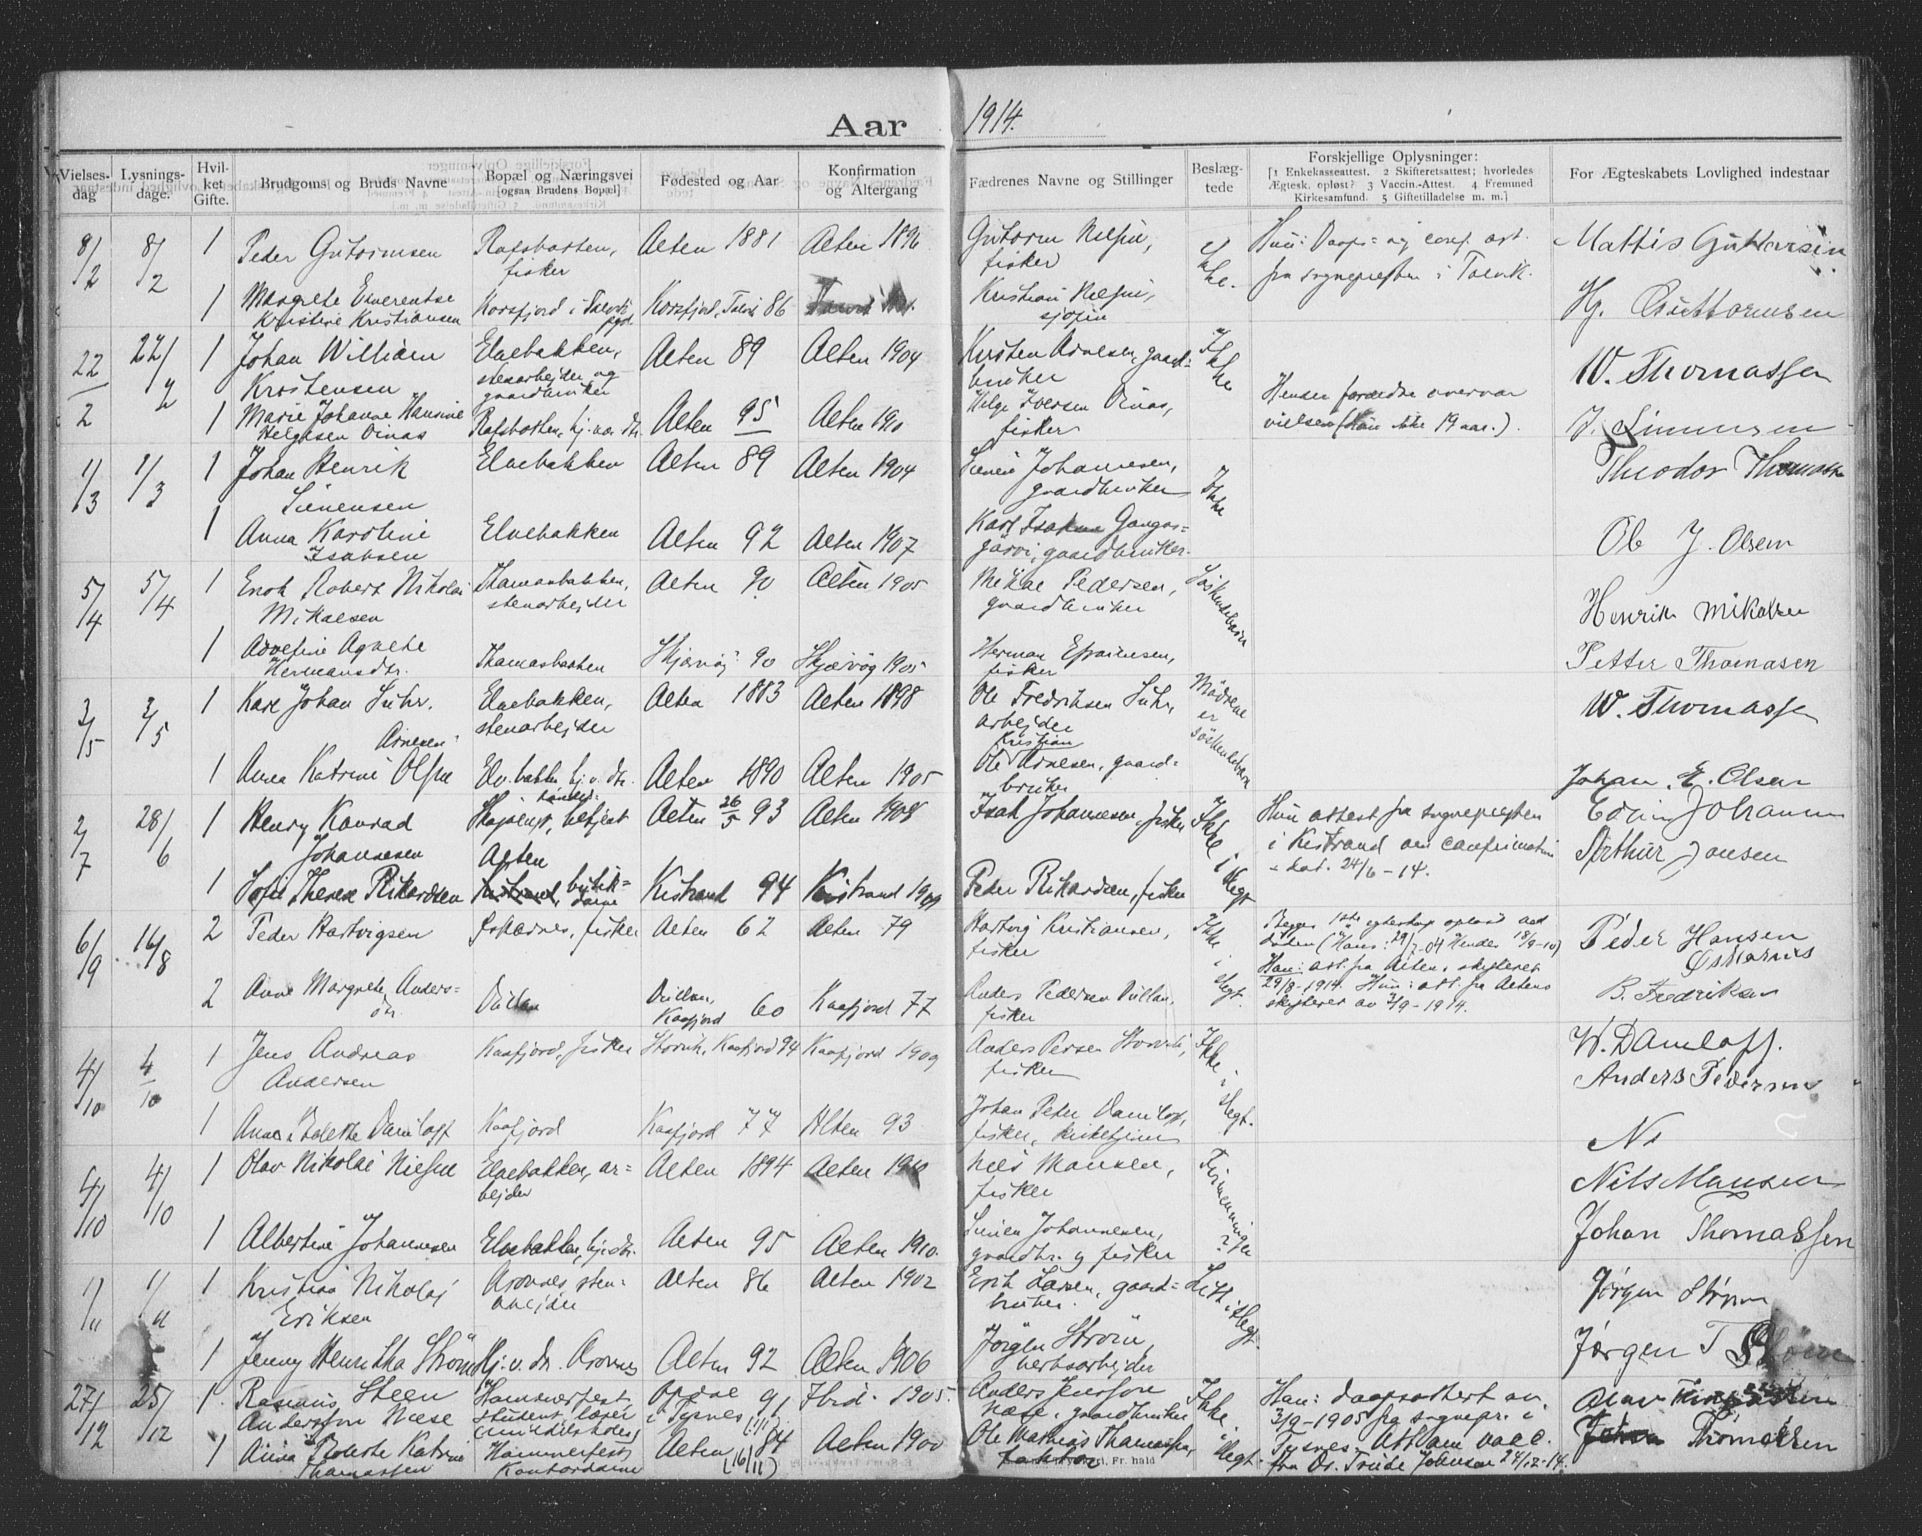 Aar 1914.
Vielses-dag
Lysnings-dage.
Hvil-ket Gifte.
Brudgoms og Bruds Navne
Bopæl og Næringsvei [ogsaa Brudens Bopæl]
Fødested og Aar
Konfirmation og Altergang
Fædrenes Navne og Stillinger
Beslæg-tede
Forskjellige Oplysninger:
[1 Enkekasseattest. 2 Skifteretsattest; hvorledes
Ægtesk. opløst? 3 Vaccin.-Attest. 4 Fremmed
Kirkesamfund. 5 Giftetilladelse m. m.]
For Ægteskabets Lovlighed indestaar
8/2 8/2 1 Peder Gutormsen Rafsbotten, fisker Alten 1881 Alten 1896 Gutorm Nilsen, fisker Ikke. Hun: Daaps- og conf. att. fra sognepresten i Talvik. Mattis Guttorsen
1 Margrete Kristine Kristiansen Korsfjord i Talvik pgd. Korsfjord, Talvik 86 Kristian Nilsen, Hg. Guttormsen
22/2 22/2 1 Johan William Kristensen Elvebakken, stenarbejder og gaardbruker Alten 89 Alten 1904 Kristen Arnesen, gaardbruker Ikke W. Thomassen
1 Marie Johanne Hansine Helgesen Oinas Rafsbotten, hj. v. dtr. Alten 95 Alten 1910 Helge Iversen Oinas, fisker Hendes forældre overvar vielsen (hun ikke 19 aar.) J. Simensen
1/3 1/3 1 Johan Henrik Simensen Elvebakken Alten 89 Alten 1904 Simen Johannesen, gaardbruker Ikke Theodor Thomassen
1 Anna Karoline Isaksen Elvebakken Alten 92 Alten 1907 Karl Isaksen Gangasjärvi, gaardbruker. Ole J. Olsen
5/4 5/4 1 Enok Robert Nikolai Mikalsen Thomasbakken, stenarbejder Alten 90 Alten 1905 Mikal Pedersen, gaardbruker Søskendebørn Henrik Mikalsen
1 Agnete Hermansdtr. Skjærvøy 90 Skjærvøy 1905 Herman Efraimsen, fisker Petter Thomasen
3/5 3/5 1 Karl Johan Suhr. Elvebakken, stenarbejder Alten 1883 Alten 1898 Ole Fredriksen Suhr, arbejder Mødrene er søskendebørn W. Thomassen
1 Anna Katrine Olsen Arnesen Elvebakken hj. v. dtr. Alten 1890 Alten 1905 Ole Kristian Arnesen, gaardbruker Johan. E. Olsen
2/7 28/6 1 Henry Konrad Johannesen Alten Alten 26/5 93 Alten 1908 Isak Johannesen, fisker Ikke i slegt Hun attest fra sognepresten i Kistrand om confirmation dat. 24/6-14. Edin Johannesen
1 Sofie Therese Rikardsen Kistrand, Kistrand 94 Kistrand 1909 Peder Rikardsen, fisker Arthur Jonsen
6/9 16/8 2 Peder Hartvigsen Øskarnes, fisker Alten 62 Alten 79 Hartvig Kristiansen, fisker Ikke i slegt. Begges 1ste egteskap opløst ved døden (Hans: 29/7-04 Hendes 18/9-10) Han: att. fra Altens skifteret 29/8-1914. Hun: att. fra Altens skifteret av 3/9-1914. Peder Hansen Øskarnes
2 Anne Margrete Andersdtr. Dullan Dullan, Kaafjord 60 Kaafjord 77 Anders Pedersen Dullan, fisker B. Fredriksen
4/10 4/10 1 Jens Andreas Andersen Kaafjord, fisker Storvik, Kaafjord 94 Kaafjord 1909 Anders Persen Storvik, fisker Ikke i slegt. W. Daniloff.
Anders Pedersen
1 Anna Bolette Daniloff Kaafjord Kaafjord 77 Alten 93 Johan Peter Daniloff, fisker, Ns
4/10 4/10 1 Olav Nikolai Nielsen Elvebakken, arbejder Alten 1894 Alten 1910 Niels Mansen, fisker Firmenninger? Nils Mansen
1 Albertine Johannesen Elvebakken, hj. v. dtr. Alten 95 Alten 1910. Simen Johannesen, gaardbr. og fisker Johan Thomassen
1/11 1/11 1 Kristian Nikolaj Eriksen Aronnes stenarbejder Alten 86 Alten 1902 Erik Larsen, gaardbruker. Litt i slegt. Jørgen Strøm
1 Jenny Henrikka Strøm Hj. v. dtr. Aronnes Alten 92 Alten 1906 Jørgen Strøm, verksarbejder Jørgen T Strøm
27/12 25/12 1. Rasmus Steen Andersson Næse Hammerfest, student, lærer Tysnes 91 Ibid. 1905. Anders Næse, gaardbruker Ikke i slegt. Han: daapsattest av 3/9-1905 fra sognepr. i Tysnes. Att. om vacc. fra Dr. Trude Johnsen 24/12-14. Olav Thomassen
1 Anna Bolette Katrine Thomassen Hammerfest, Kontordame Alten (16/11) 84 Alten 1900 Ole Mathias Thomassen, faktor Johan Thomassen